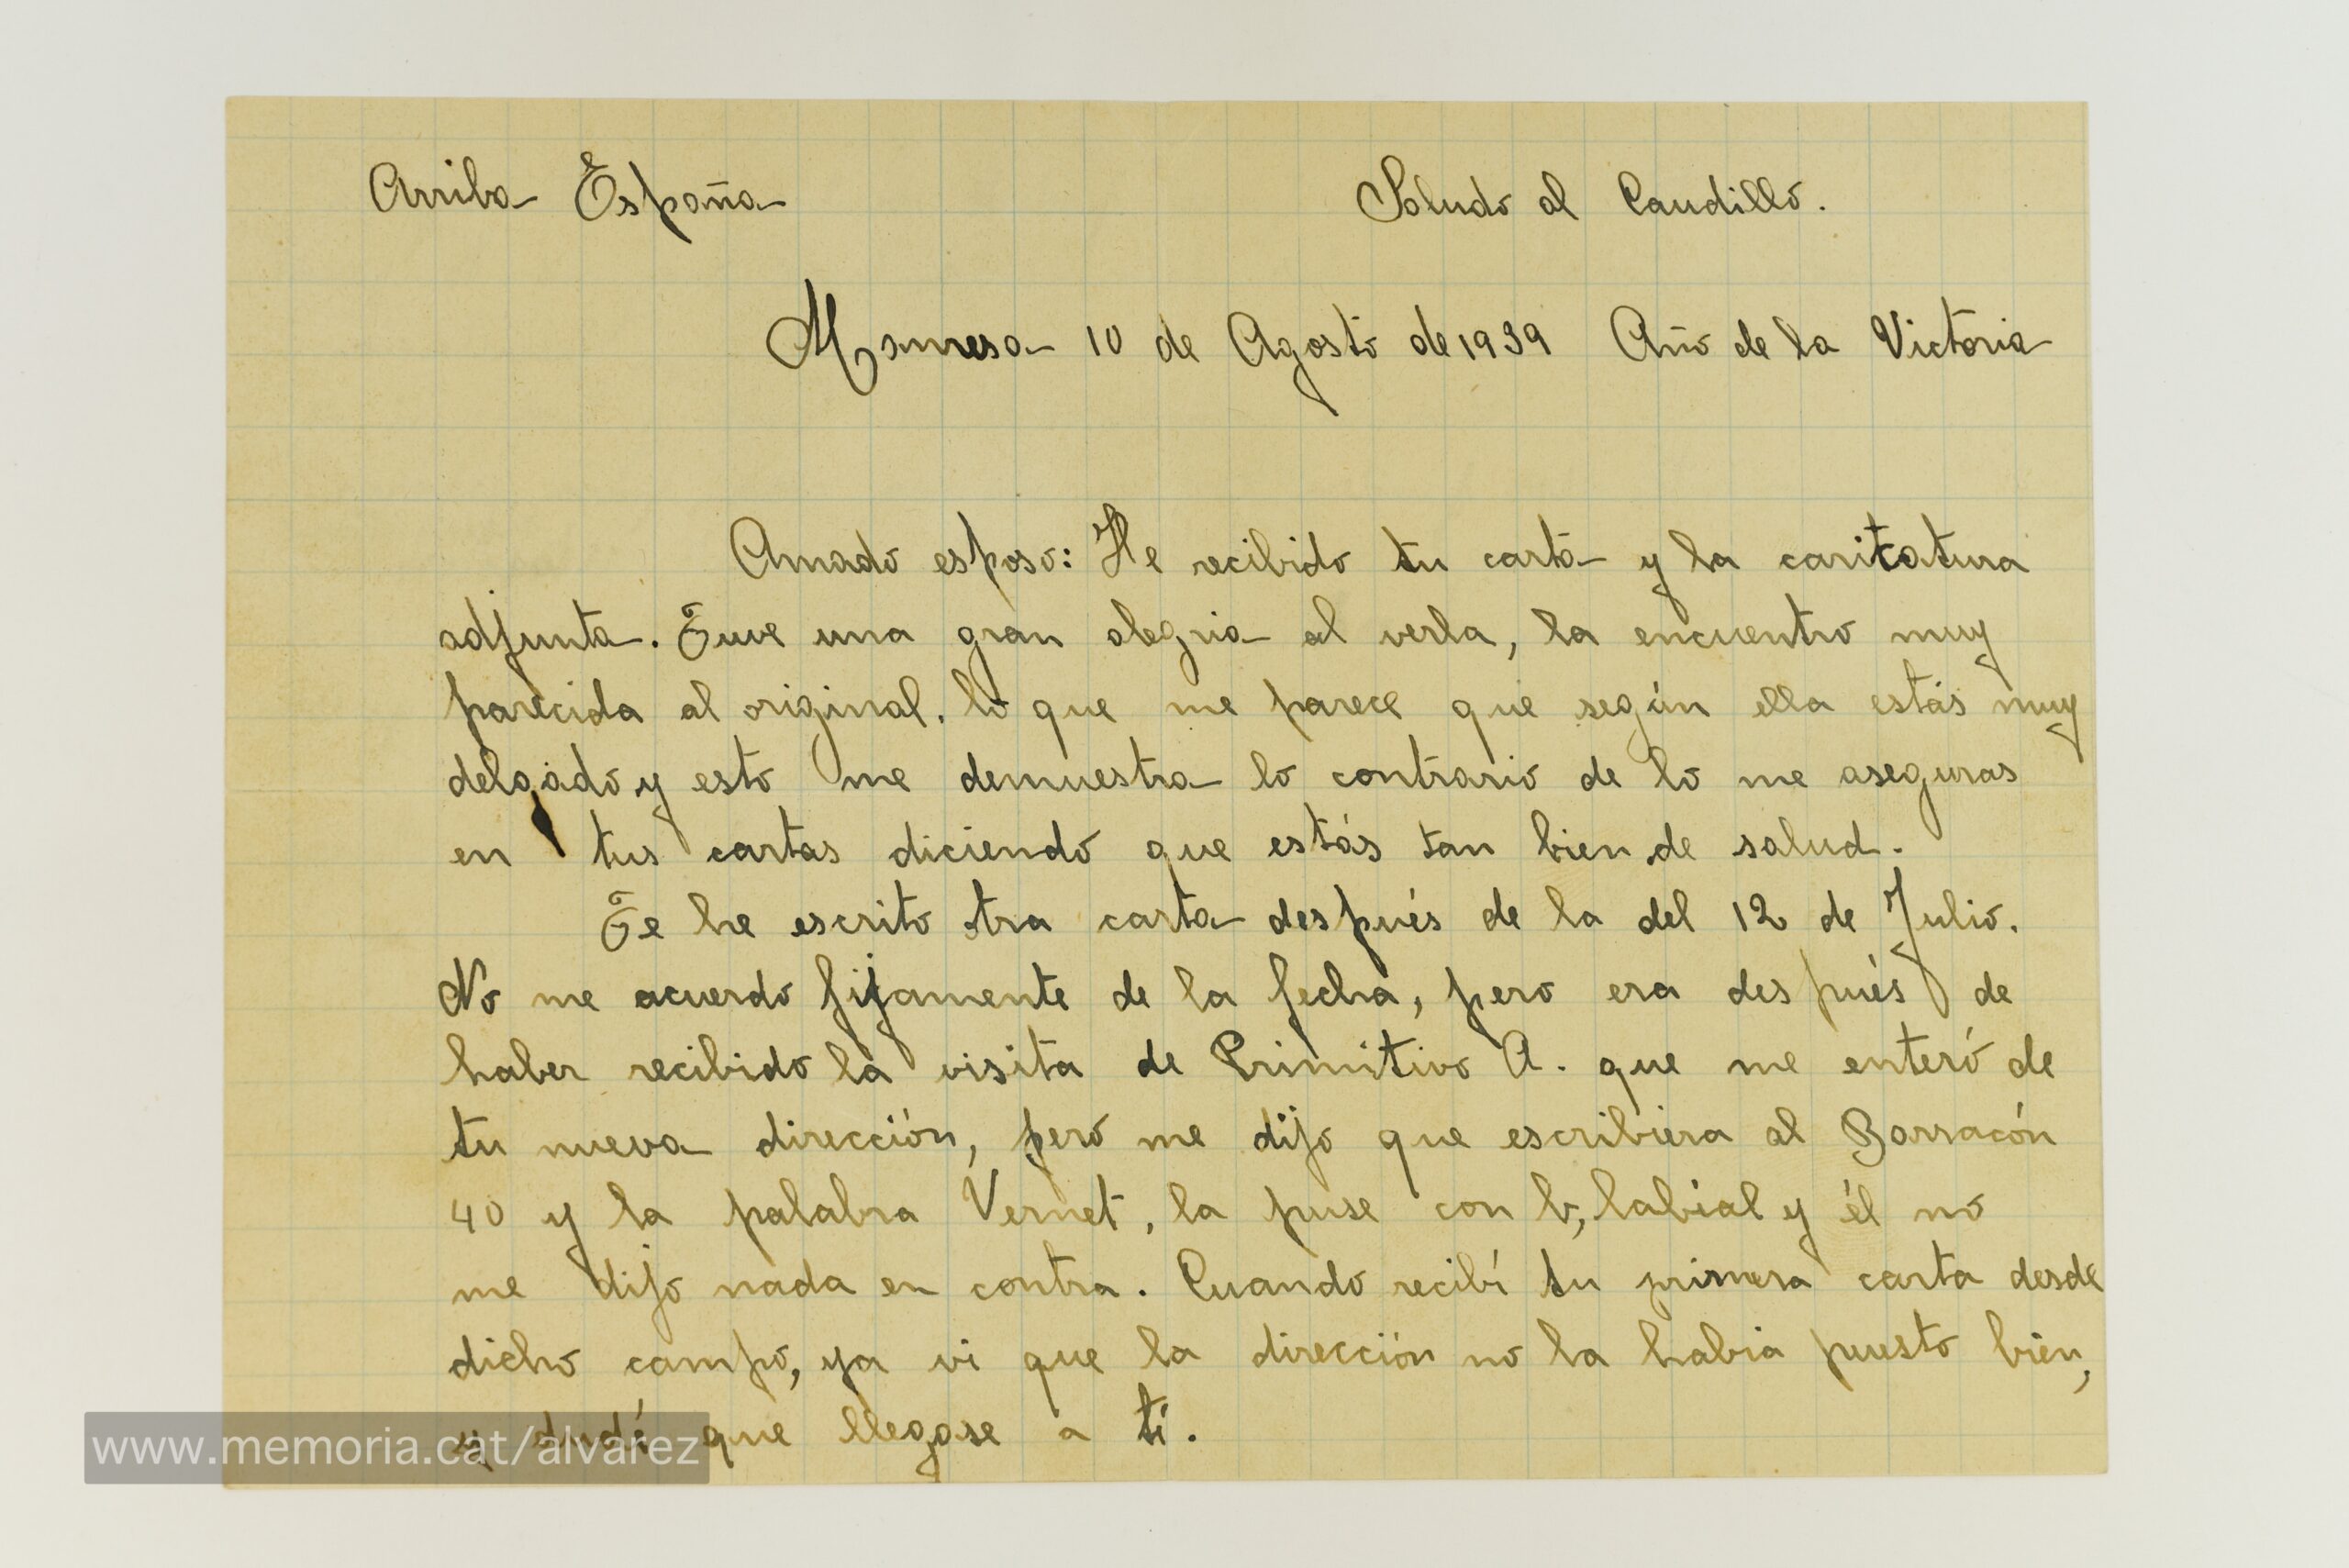 Arriba España Saludo al Caudillo.
Manresa 10 de Agosto de 1939 Año de la Victoria
Amado esposo: He recibido tu carta y la caritatura
adjunta. Tuve una gran alegria al verla, la encuentro muy
parecida al original. lo que me parece que según ella estás muy
delgado y esto me demuestra lo contrario de lo me aseguras
en tus cartas diciendo que estás tan bien de salud.
Te he escrito otra carta después de la del 12 de Julio.
No me acuerdo fijamente de la fecha, pero era después de
haber recibido la visita de Primitivo A. que me enteró de
tu nueva dirección, pero me dijo que escribiera al Barracón
40 y la palabra Vernet, la puse con b, labial y él no
me dijo nada en contra. Cuando recibí tu primera carta desde
dicho campo, ya vi que la dirección no la habia puesto bien,
y dudé que llegase a tí.
www.memoria.cat/alvarez